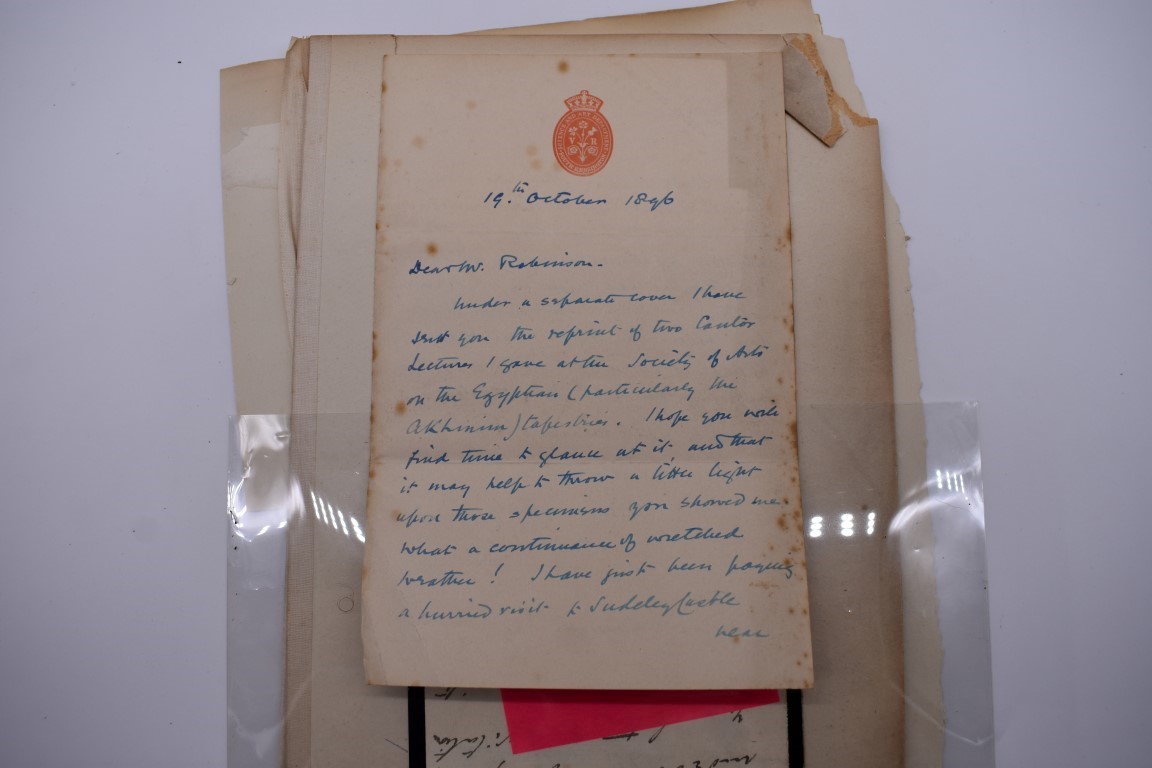 V R
19th October 1896
Dear Mr. Robinson.
Under a separate cover I have
sent you the reprint of two Cantor
Lectures I gave at the Society of Arts
on the Egyptian (particularly the
Akhmim) tapestries. I hope you will
find time to glance at it, and that
it may help to throw a little light
upon those specimens you showed me
What a continuance of wretched
weather! I have just been paying
a hurried visit to Sudeley Castle
near